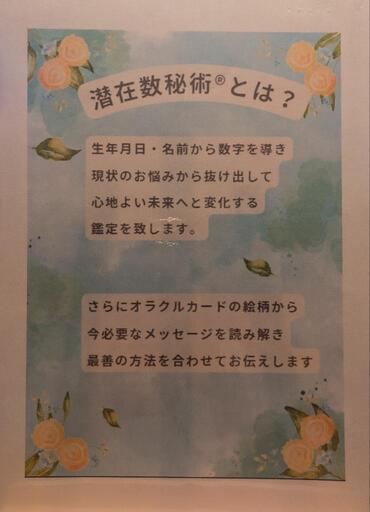 潜在数秘術®とは？
生年月日・名前から数字を導き
現状のお悩みから抜け出して
心地よい未来へと変化する
鑑定を致します。
さらにオラクルカードの絵柄から
今必要なメッセージを読み解き
最善の方法を合わせてお伝えします